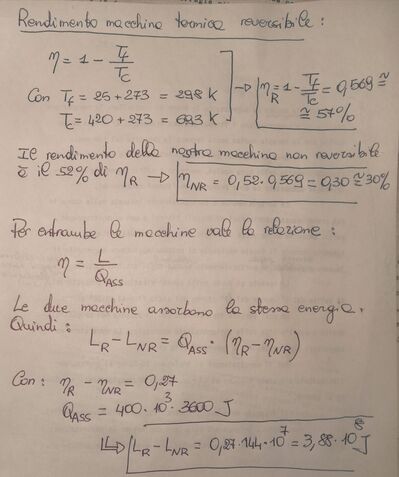 Rendimento macchina termica reversibile:
η = 1 - Tf/Tc
Con Tf = 25 + 273 = 298 K
Tc = 420 + 273 = 693 K
→ ηR = 1 - Tf/Tc = 0,569 ≅
≅ 57%
Il rendimento della nostra macchina non reversibile
è il 52% di ηR → ηNR = 0,52 · 0,569 = 0,30 ≅ 30%
Per entrambe le macchine vale la relazione:
η = L/QASS
Le due macchine assorbono la stessa energia.
Quindi:
LR - LNR = QASS · (ηR - ηNR)
Con: ηR - ηNR = 0,27
QASS = 400 · 10³ · 3600 J
↳ LR - LNR = 0,27 · 144 · 10⁷ = 3,88 · 10⁸ J